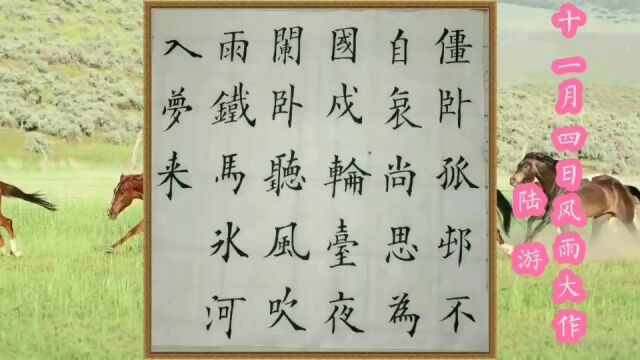 十一月四日风雨大作
陆游
僵卧孤邨不
自哀尚思為
國戍輪臺夜
闌卧聽風吹
雨鐵馬氷河
入夢来